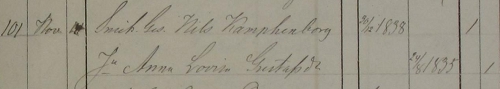 101 Nov. Smidt. Ges. Nils Kamphenborg 31/12 1838 1
Ju Anna Lovisa Gustafsdr 29/6 1835 1